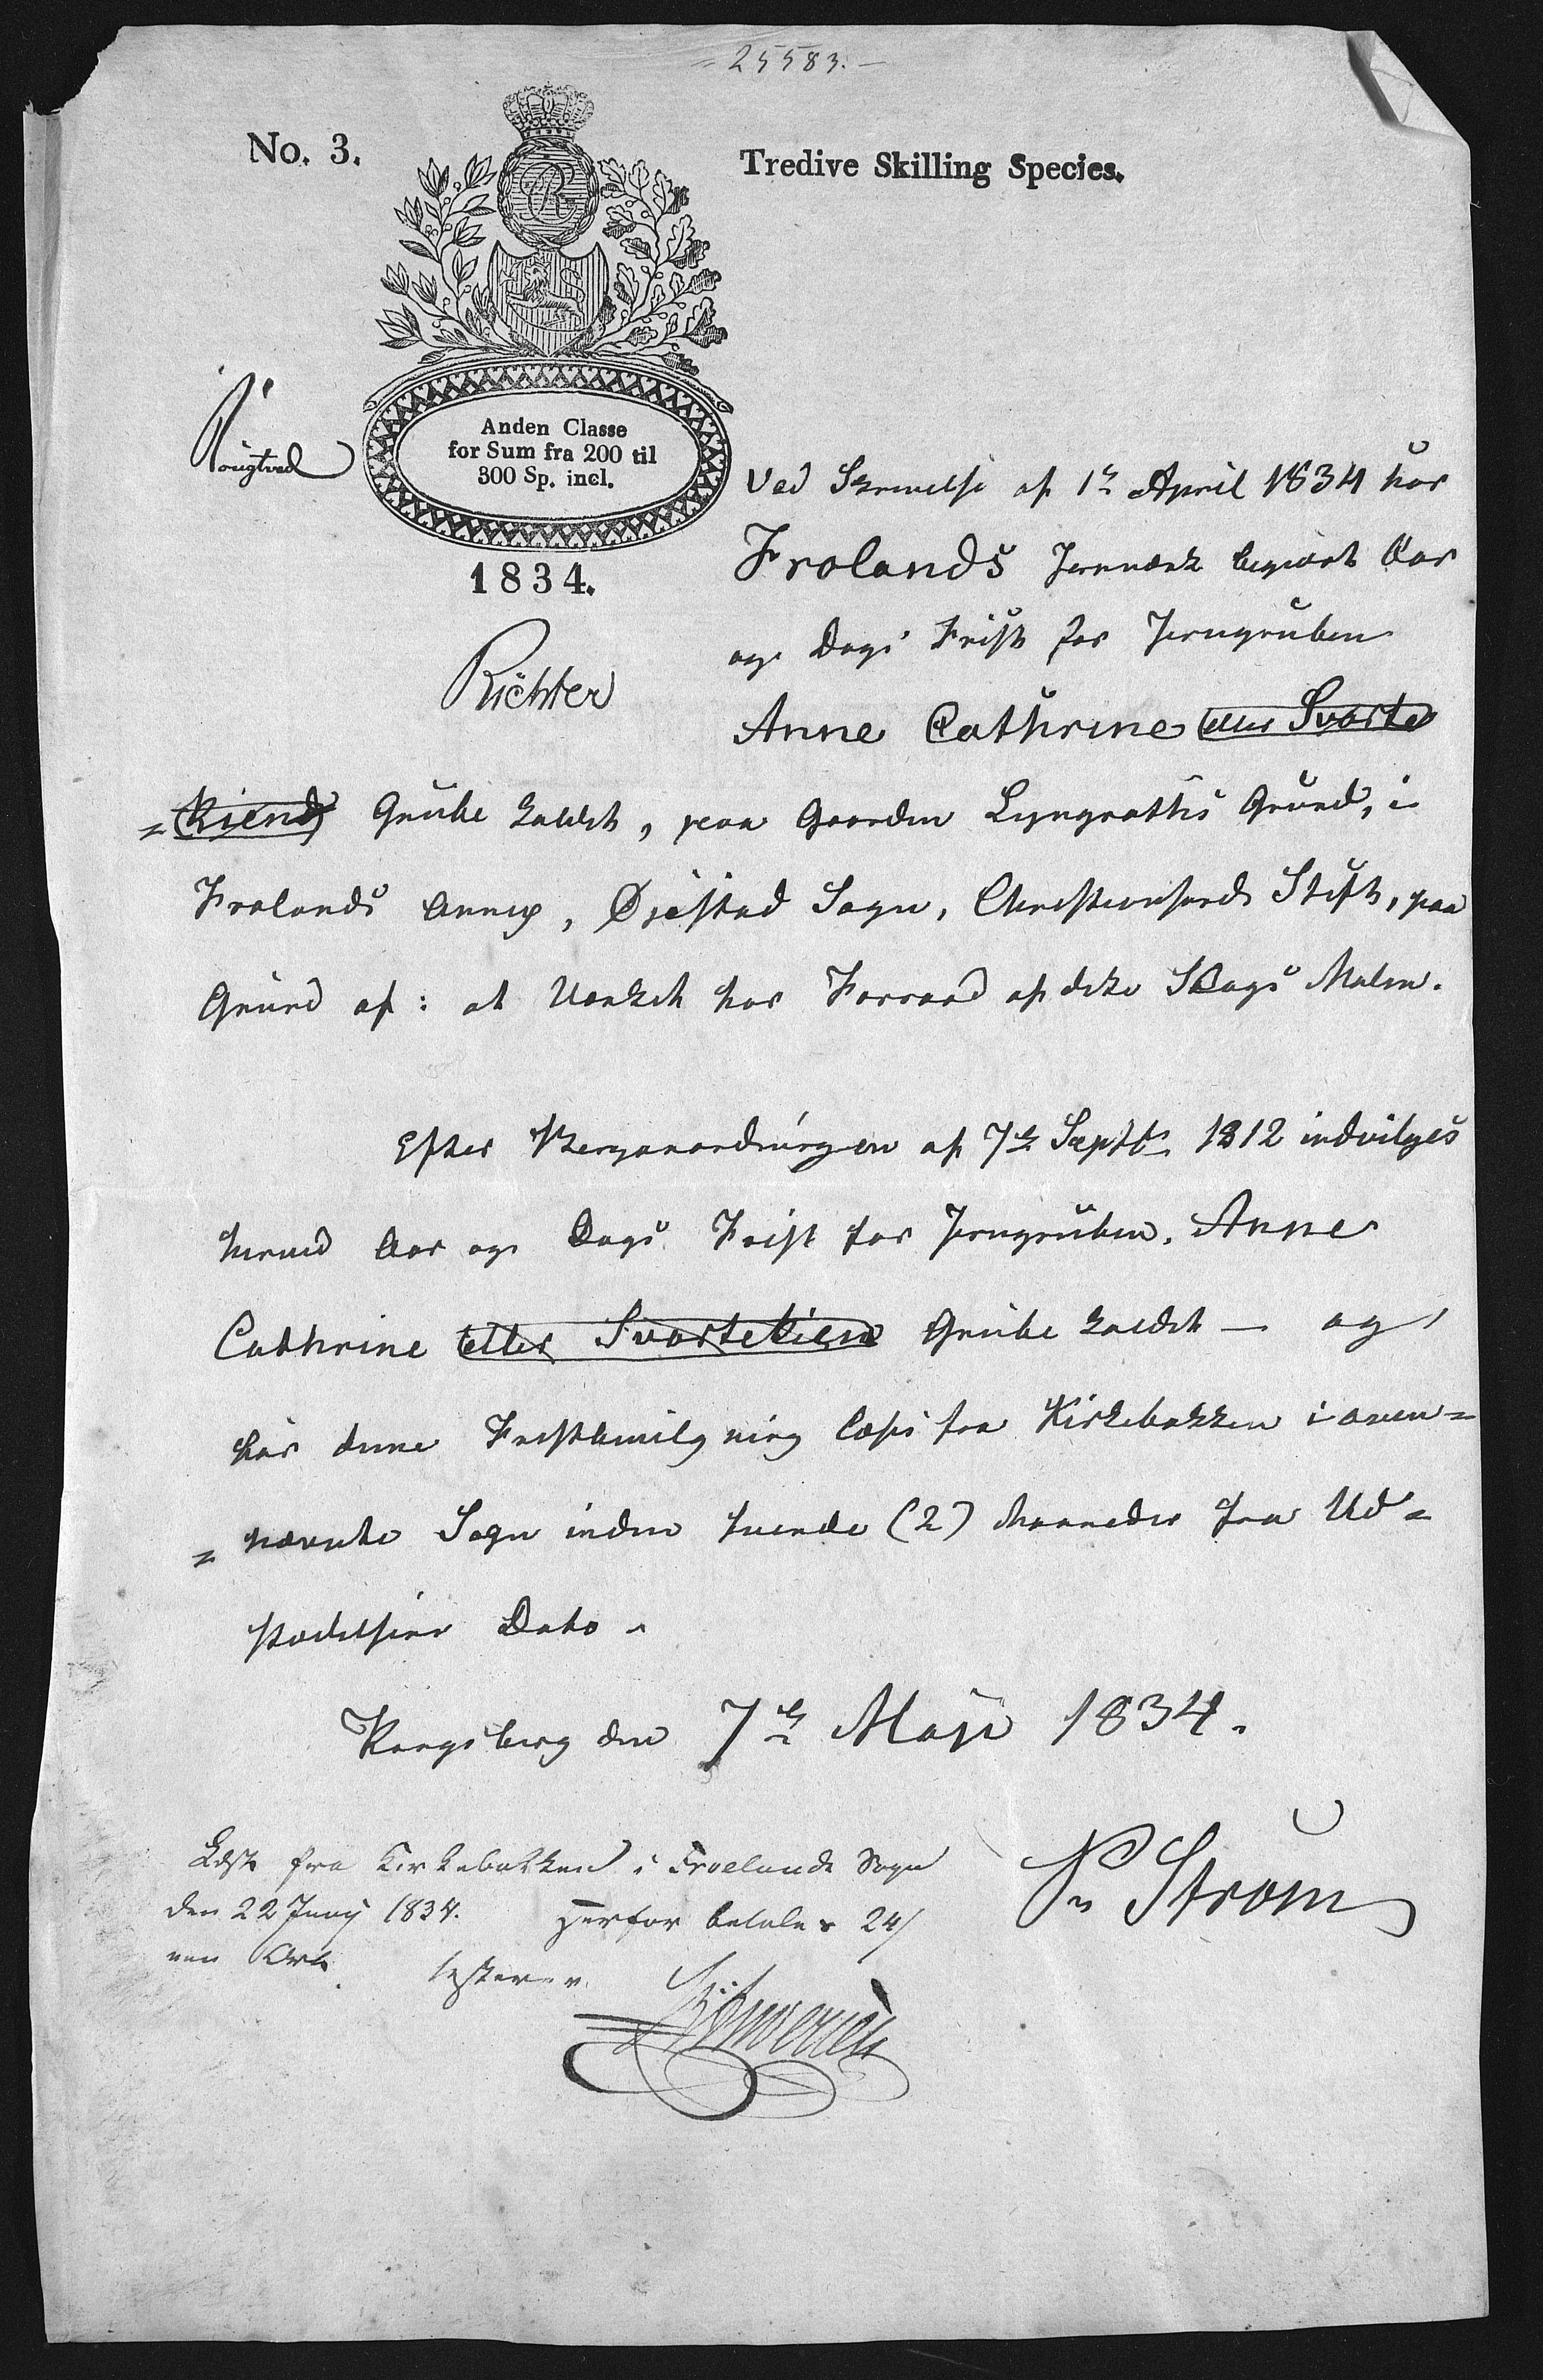 = 25583. –
No. 3.
Tredive Skilling Species.
Anden Classe
for Sum fra 200 til
300 Sp. incl.
1834.
Richter
Ved Skrivelse af 1ste April 1834 har
Frolands Jernværk begiært Aar
og Dags Frist for Jerngruben
Anne Cathrine eller Svarte
=kiend Grube kaldet, paa Gaarden Lyngroths Grund, i
Frolands Annex, Øiestad Sogn, Christiansands Stift, paa
Grund af: at Værket har Forraad af dette Slags Malm.
Efter Berganordningen af 7de Septbr. 1812 indvilges
herved Aar og Dags Frist for Jerngruben. Anne
Cathrine eller Svartekien Grube kaldet — og
bør denne Fristbevilgning læses fra Kirkebakken i oven=
=nævnte Sogn inden tvende (2) Maaneder fra Ud=
stædelsens Dato.
Kongsberg den 7de Maji 1834.
P. Strøm
Læst fra Kirkebakken i Froelands Sogn
den 22 Junij 1834. Herfor betales 24/
een Ort. testerer